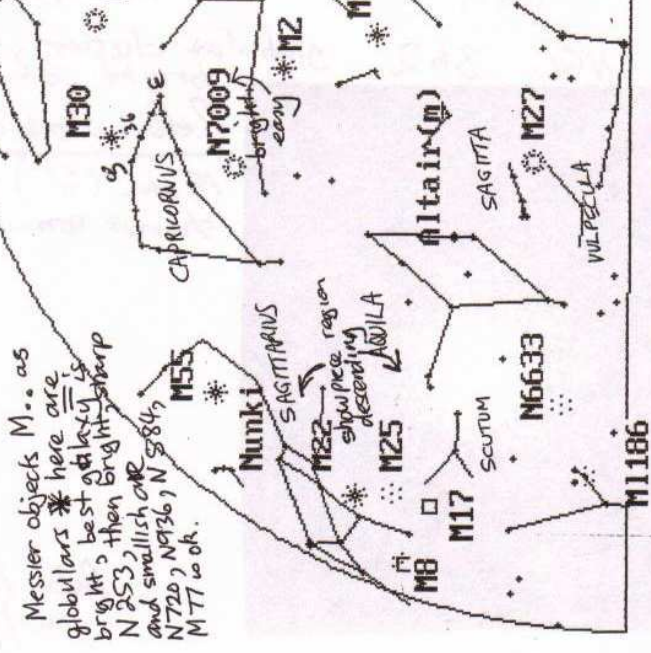 Messier objects M.. as
globullars * here are
bright, best galaxy is
N 253, then bright sharp
and smallish are
N720, N936, N 584,
M77 is ok.
M30
36
CAPRICORNUS
N7009
bright
easy
M2
M
M55
Nunki
SAGITTARIUS
M22
showpiece region
descending
AQUILA
M25
M8
M17
SCUTUM
Altair(m)
SAGITTA
M27
VULPECULA
N6633
M1186